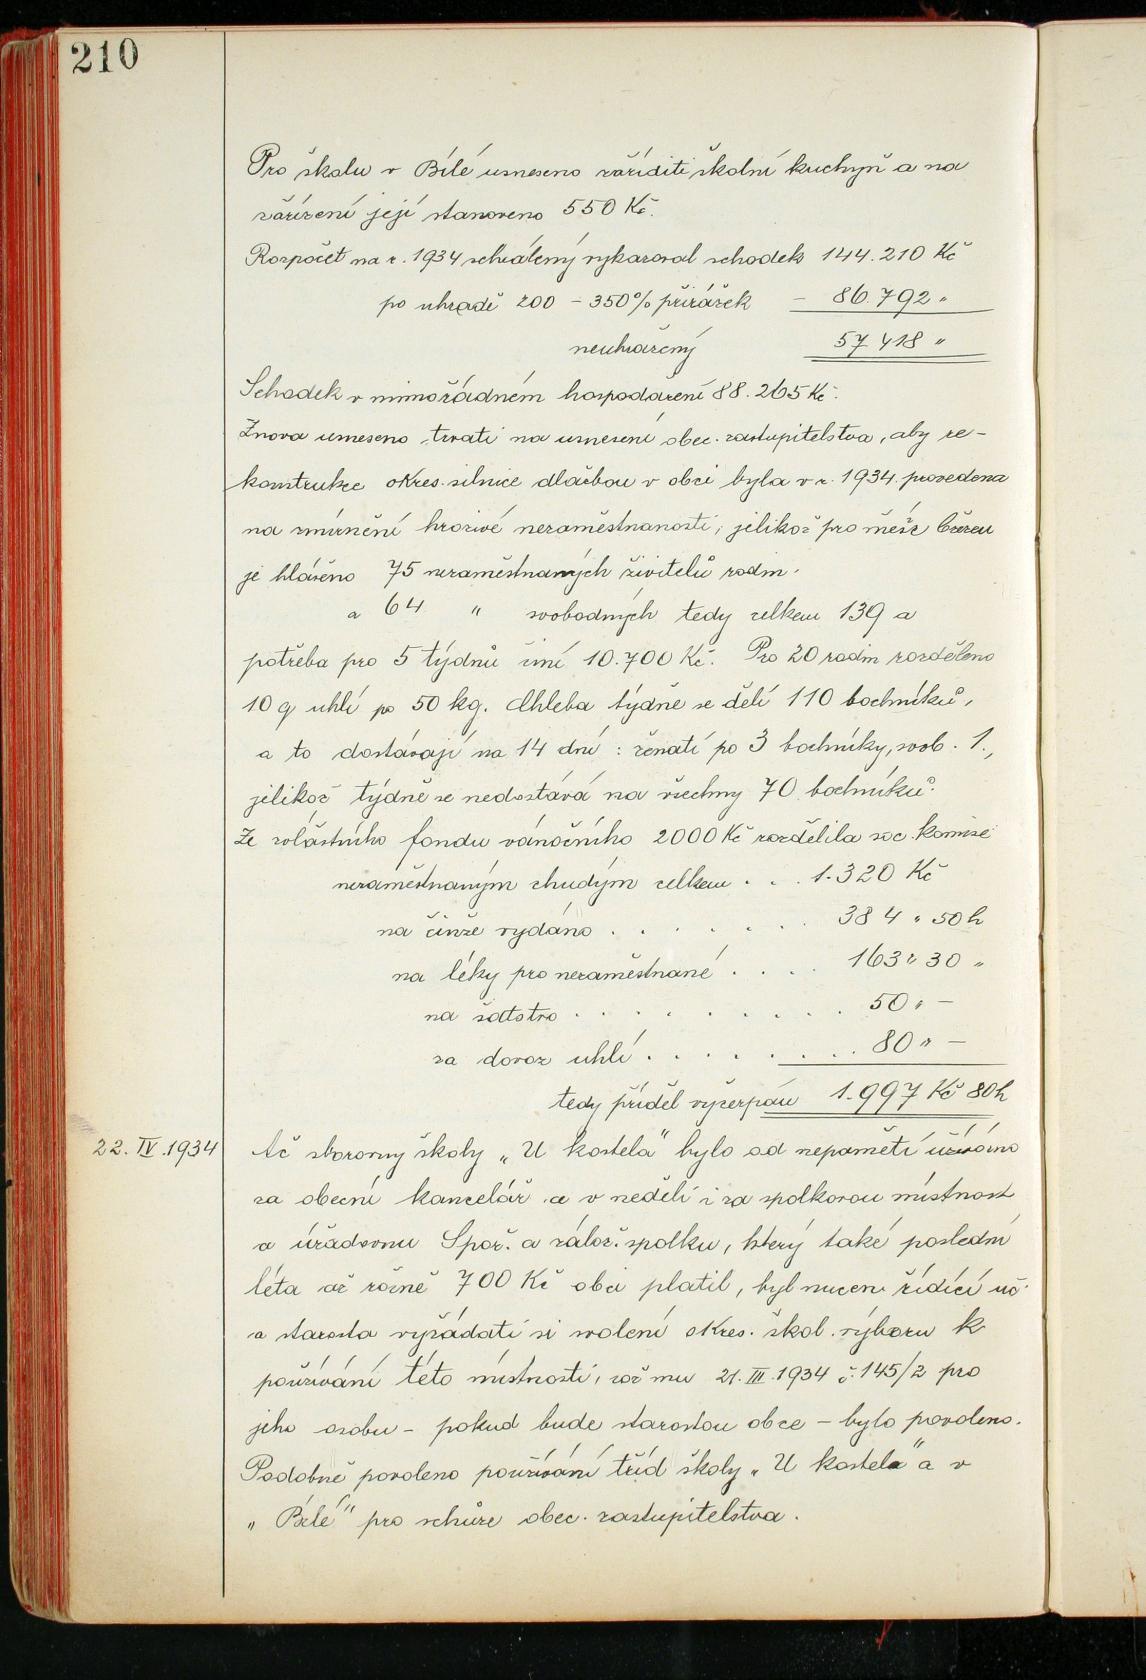 210
Pro školu v Bílé usneseno zaříditi školní kuchyň a na
zařízení její stanoveno 550 Kč.
Rozpočet na r. 1934 schválený vykazoval schodek 144.210 Kč
po uhradě 200 – 350% přirážek – 86.792 „
neuhražený 57 418 „
Schodek v mimořádném hospodaření 88.265 Kč.
Znova usneseno trvati na usnesení obec. zastupitelstva, aby re-
konstrukce okres. silnice dlažbou v obci byla v r. 1934 provedena
na zmírnění hrozivé nezaměstnanosti, jelikož pro měsíc březen
je hlášeno 75 nezaměstnaných živitelů rodin.
a 64 „ svobodných tedy celkem 139 a
potřeba pro 5 týdnů činí 10.700 Kč. Pro 20 rodin rozděleno
10 q uhlí po 50 kg. Chleba týdně se dělí 110 bochníků,
a to dostávají na 14 dní : ženatí po 3 bochníky, svob. 1.,
jelikož týdně se nedostává na všechny 70 bochníků.
Ze zvláštního fondu vánočního 2000 Kč rozdělila soc. komise
nezaměstnaným chudým celkem . . . 1.320 Kč
na činže vydáno . . . . . . 384 „ 50 h
na léky pro nezaměstnané . . . . 163 „ 30 „
na šatstvo . . . . . . . . . 50 „ –
za dovoz uhlí . . . . . . . . 80 „ –
tedy příděl vyčerpán 1.997 Kč 80 h
22. IV. 1934 Ač sborovny školy „U kostela“ bylo od nepaměti užíváno
za obecní kancelář a v neděli i za spolkovou místnost
a úřadovnu Spoř. a zálož. spolku, který také poslední
léta až ročně 700 Kč obci platil, byl nucen řídící uč.
a starosta vyžádati si svolení okres. škol. výboru k
používání této místnosti, což mu 21. III. 1934 č. 145/2 pro
jeho osobu – pokud bude starostou obce – bylo povoleno.
Podobně povoleno používání tříd školy „U kostela“ a v
„Bílé“ pro schůze obec. zastupitelstva.